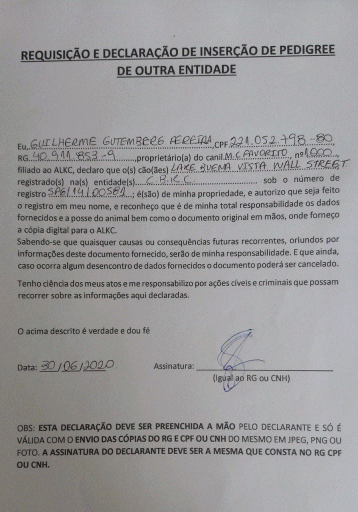 REQUISIÇÃO E DECLARAÇÃO DE INSERÇÃO DE PEDIGREE
DE OUTRA ENTIDADE
Eu, GUILHERME GUTEMBERG PEREIRA, CPF 221.052.798-80,
RG 40.911.853-9 ,proprietário(a) do canil M.C FAVORITO, nº 1.000,
filiado ao ALKC, declaro que o(s) cão(ães) LAKE BUENA VISTA WALL STREET
registrado(s) na(s) entidade(s) CBKC sob o número de
registro SPG/14/00581; é(são) de minha propriedade, e autorizo que seja feito
o registro em meu nome, e reconheço que é de minha total responsabilidade os dados
fornecidos e a posse do animal bem como o documento original em mãos, onde forneço
a cópia digital para o ALKC.
Sabendo-se que quaisquer causas ou consequências futuras recorrentes, oriundos por
informações deste documento fornecido, serão de minha responsabilidade. E que ainda,
caso ocorra algum desencontro de dados fornecidos o documento poderá ser cancelado.
Tenho ciência dos meus atos e me responsabilizo por ações cíveis e criminais que possam
recorrer sobre as informações aqui declaradas.
O acima descrito é verdade e dou fé
Data: 30/06/2020 Assinatura:
(Igual ao RG ou CNH)
OBS: ESTA DECLARAÇÃO DEVE SER PREENCHIDA A MÃO PELO DECLARANTE E SÓ É
VÁLIDA COM O ENVIO DAS CÓPIAS DO RG E CPF OU CNH DO MESMO EM JPEG, PNG OU
FOTO. A ASSINATURA DO DECLARANTE DEVE SER A MESMA QUE CONSTA NO RG CPF
OU CNH.